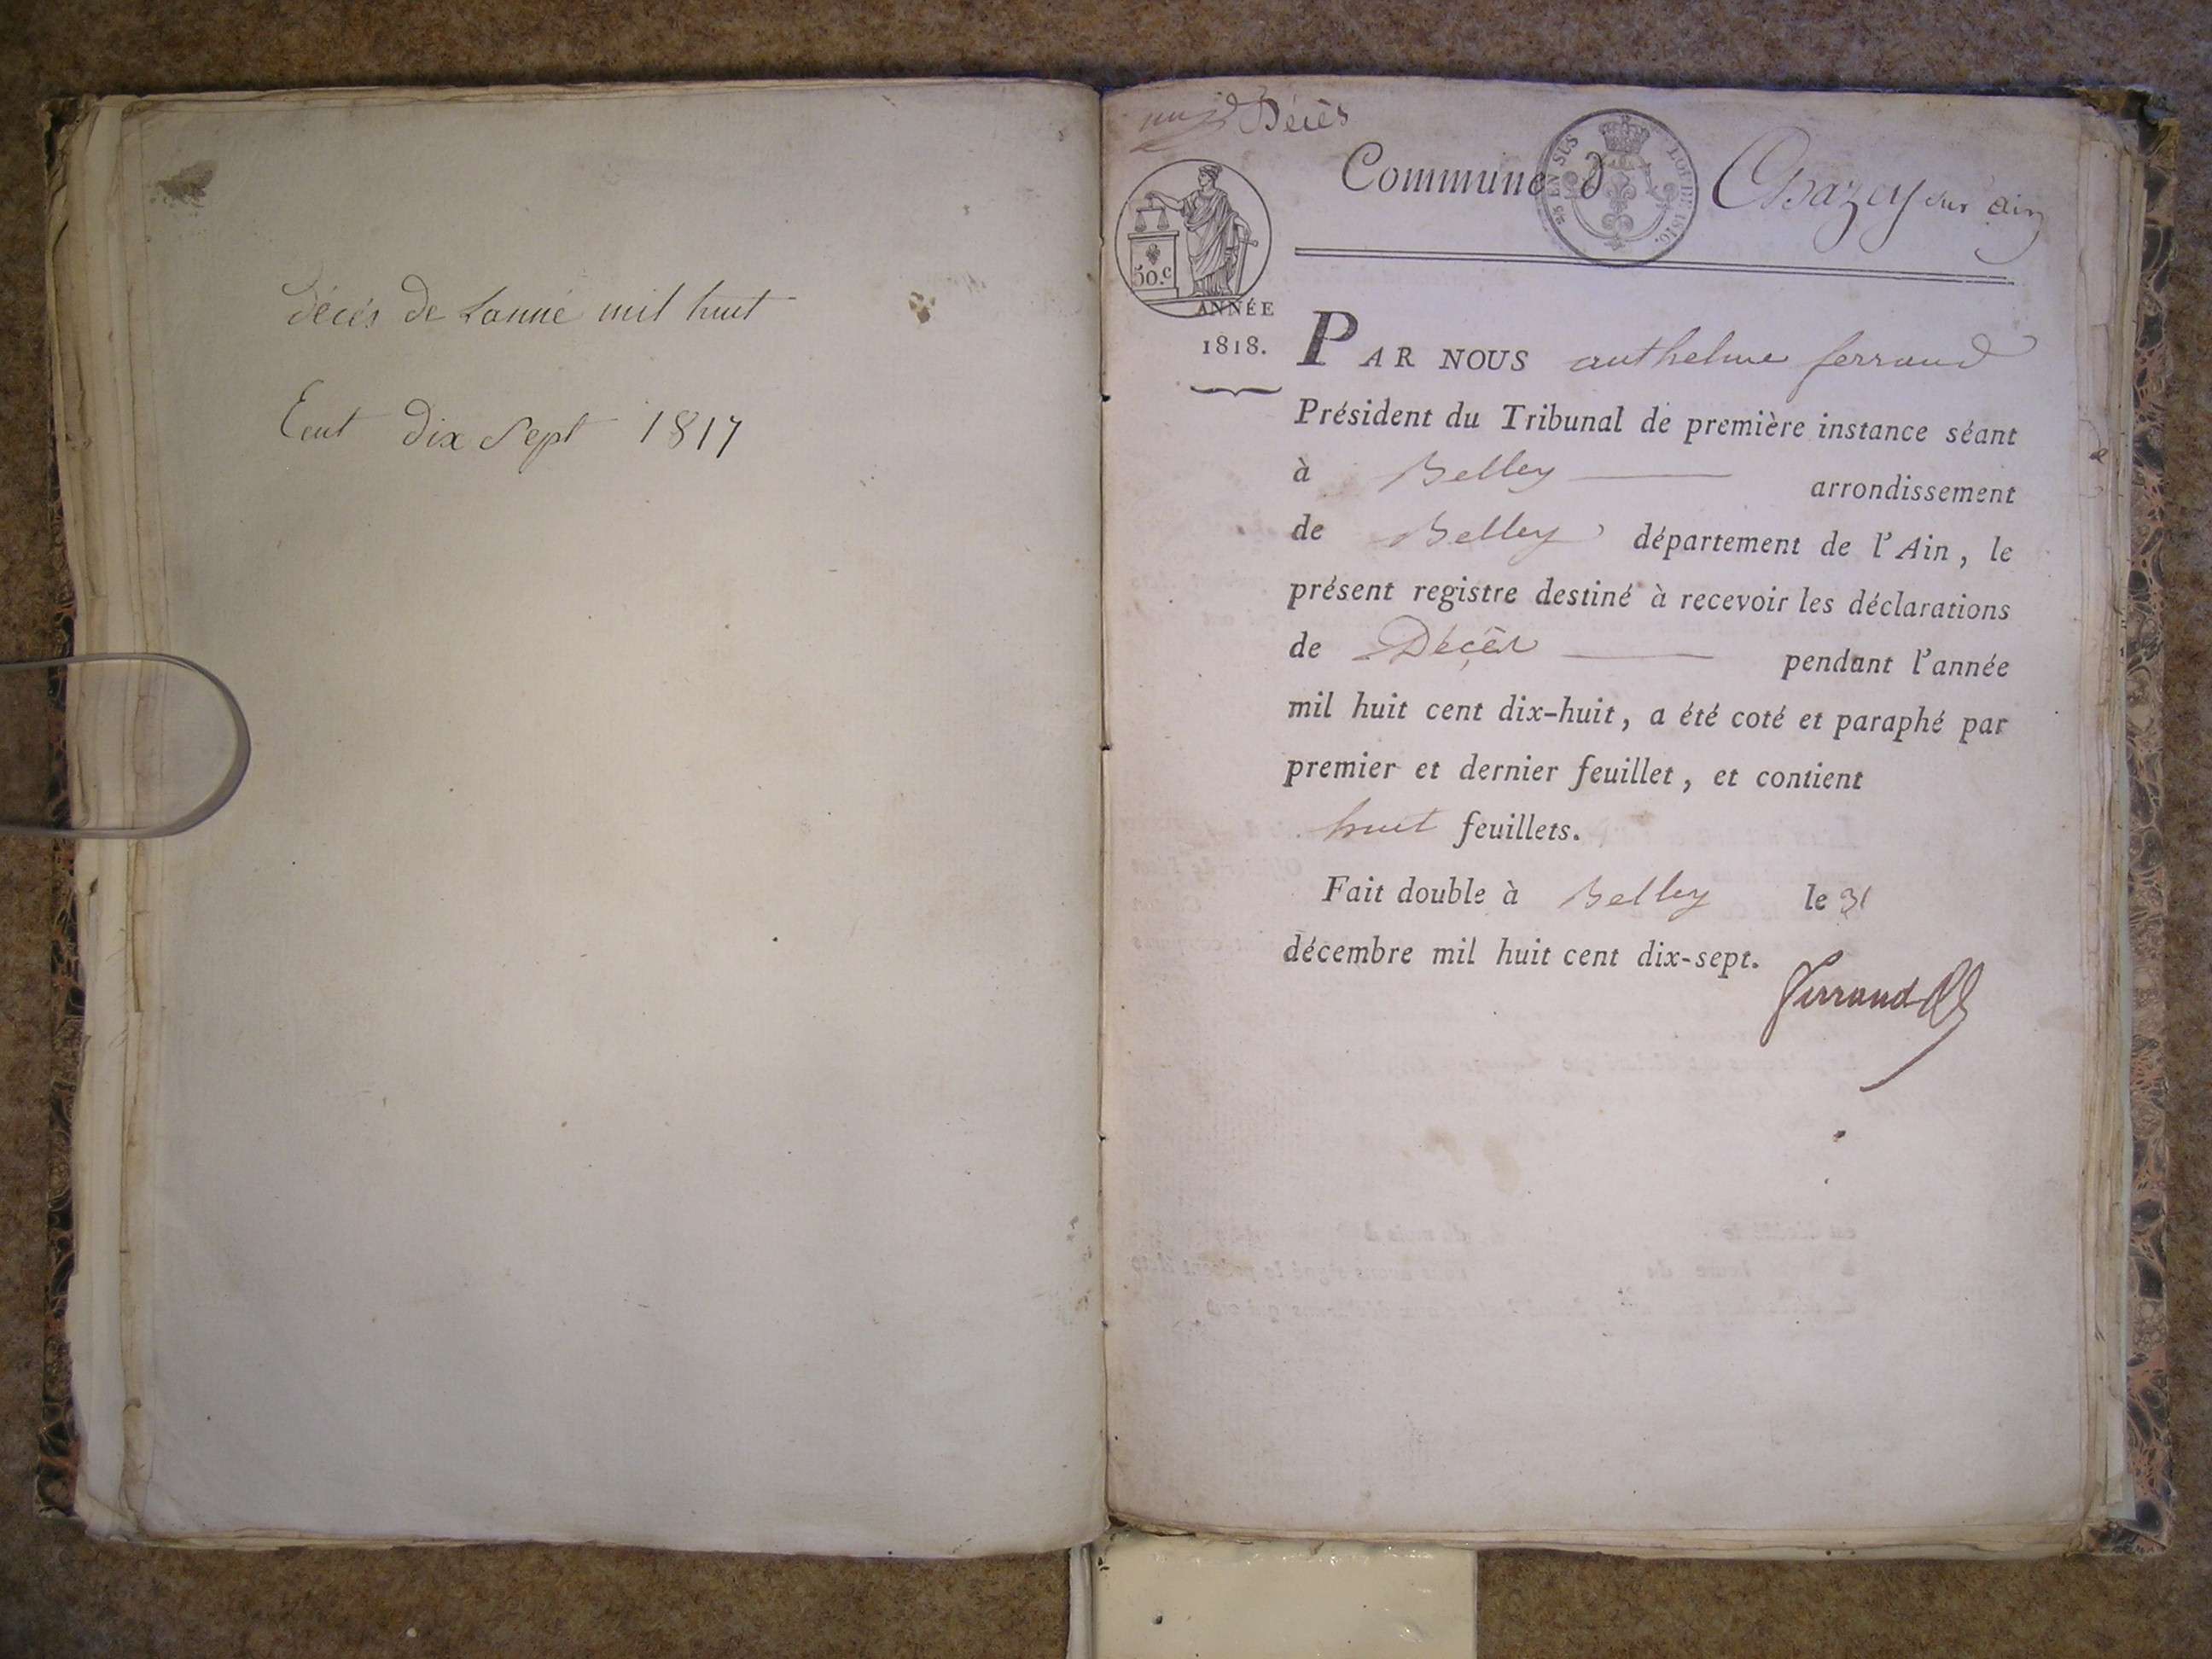 décés de Lanné mil huit
Cent dix Sept 1817
Décès
Commune d Chazey sur ain
5ms EN SUS LOI DE 1816.
50.c
ANNÉE
1818.
PAR NOUS anthelme ferrand
Président du Tribunal de première instance séant
à Belley arrondissement
de Belley département de l'Ain, le
présent registre destiné à recevoir les déclarations
de Décès pendant l'année
mil huit cent dix-huit, a été coté et paraphé par
premier et dernier feuillet, et contient
huit feuillets.
Fait double à Belley le 31
décembre mil huit cent dix-sept.
Ferrand